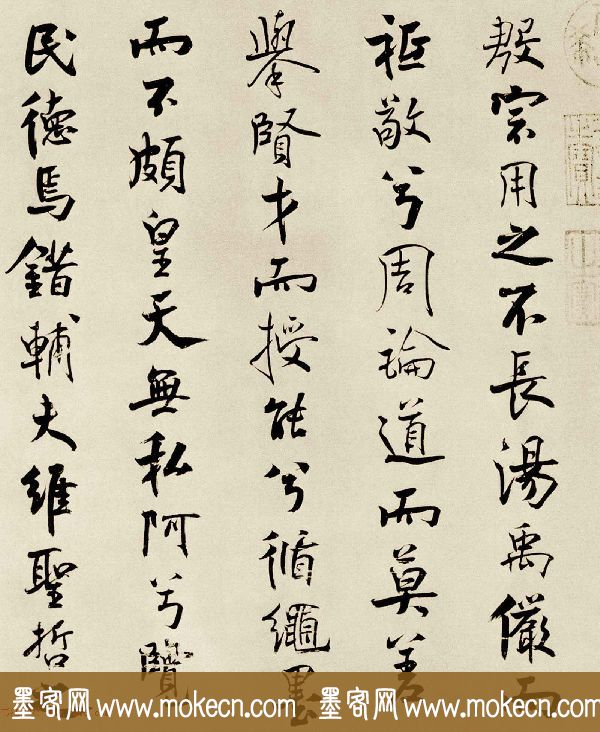 殷宗用之不長湯禹儼而
祗敬兮周論道而莫差
舉賢才而授能兮循繩墨
而不頗皇天無私阿兮覽
民德焉錯輔夫維聖哲
墨客网 www.mokecn.com 墨客网 www.mokecn.com